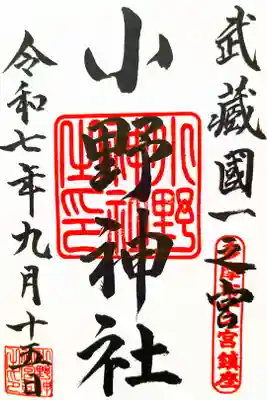 武蔵國一之宮
小野神社
令和七年九月十五日
小野神社之印